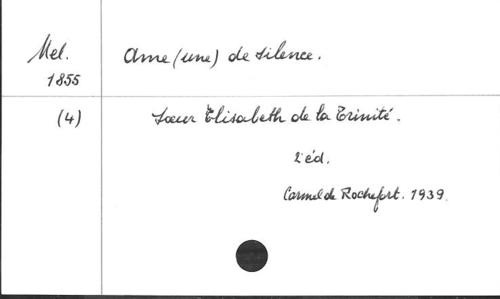 Mel.
1855
Ame (une) de silence.
(4)
Soeur Elisabeth de la Trinité.
2e éd.
Carmel de Rochefort. 1939.